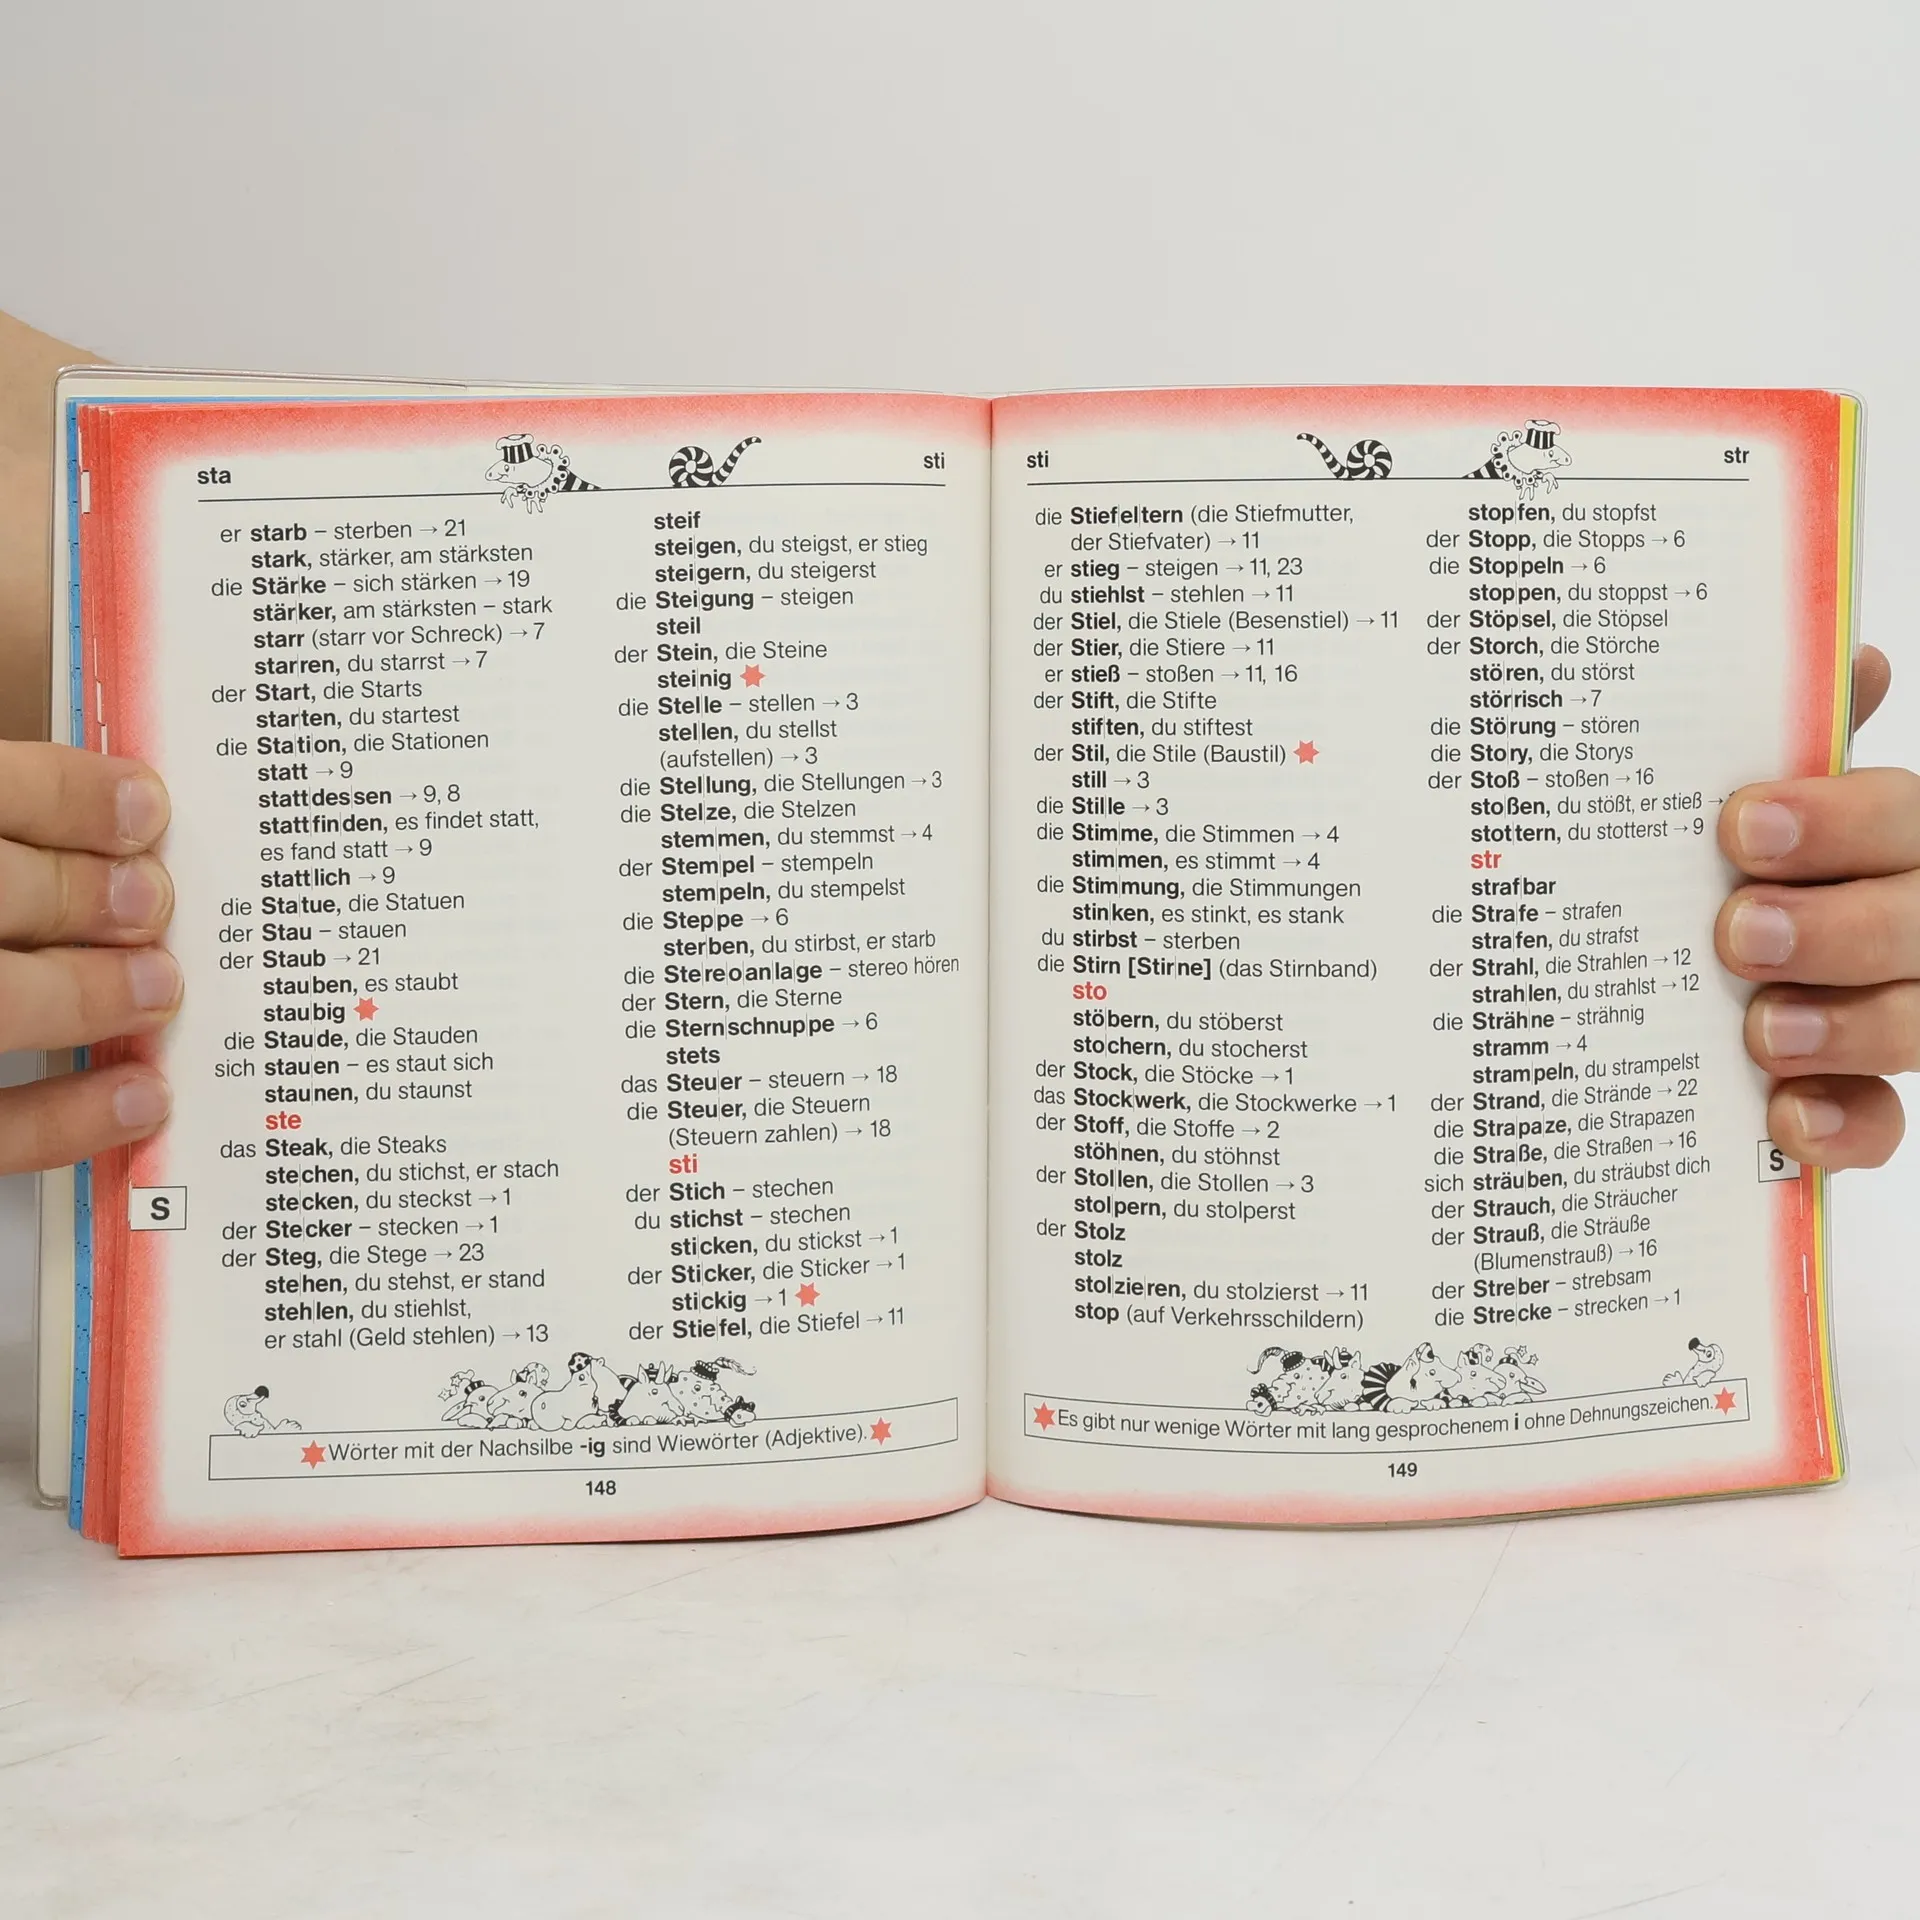 sta
sti
er starb – sterben → 21
stark, stärker, am stärksten
die Stär|ke – sich stärken → 19
stär|ker, am stärksten – stark
starr (starr vor Schreck) → 7
star|ren, du starrst → 7
der Start, die Starts
star|ten, du startest
die Sta|ti|on, die Stationen
statt → 9
statt|des|sen → 9, 8
statt|fin|den, es findet statt,
es fand statt → 9
statt|lich → 9
die Sta|tue, die Statuen
der Stau – stauen
der Staub → 21
stau|ben, es staubt
stau|big
die Stau|de, die Stauden
sich stau|en – es staut sich
stau|nen, du staunst
ste
das Steak, die Steaks
ste|chen, du stichst, er stach
ste|cken, du steckst → 1
der Ste|cker – stecken → 1
der Steg, die Stege → 23
ste|hen, du stehst, er stand
steh|len, du stiehlst,
er stahl (Geld stehlen) → 13
steif
stei|gen, du steigst, er stieg
stei|gern, du steigerst
die Stei|gung – steigen
steil
der Stein, die Steine
stei|nig
die Stel|le – stellen → 3
stel|len, du stellst
(aufstellen) → 3
die Stel|lung, die Stellungen → 3
die Stel|ze, die Stelzen
stem|men, du stemmst → 4
der Stem|pel – stempeln
stem|peln, du stempelst
die Step|pe → 6
ster|ben, du stirbst, er starb
die Ste|re|o|an|la|ge – stereo hören
der Stern, die Sterne
die Stern|schnup|pe → 6
stets
das Steu|er – steuern → 18
die Steu|er, die Steuern
(Steuern zahlen) → 18
sti
der Stich – stechen
du stichst – stechen
sti|cken, du stickst → 1
der Sti|cker, die Sticker → 1
sti|ckig → 1
der Stie|fel, die Stiefel → 11
Wörter mit der Nachsilbe -ig sind Wiewörter (Adjektive).
148
S
sti
str
die Stief|el|tern (die Stiefmutter,
der Stiefvater) → 11
er stieg – steigen → 11, 23
du stiehlst – stehlen → 11
der Stiel, die Stiele (Besenstiel) → 11
der Stier, die Stiere → 11
er stieß – stoßen → 11, 16
der Stift, die Stifte
stif|ten, du stiftest
der Stil, die Stile (Baustil)
still → 3
die Stil|le → 3
die Stim|me, die Stimmen → 4
stim|men, es stimmt → 4
die Stim|mung, die Stimmungen
stin|ken, es stinkt, es stank
du stirbst – sterben
die Stirn [Stir|ne] (das Stirnband)
sto
stö|bern, du stöberst
sto|chern, du stocherst
der Stock, die Stöcke → 1
das Stock|werk, die Stockwerke → 1
der Stoff, die Stoffe → 2
stöh|nen, du stöhnst
der Stol|len, die Stollen → 3
stol|pern, du stolperst
der Stolz
stolz
stol|zie|ren, du stolzierst → 11
stop (auf Verkehrsschildern)
stop|fen, du stopfst
der Stopp, die Stopps → 6
die Stop|peln → 6
stop|pen, du stoppst → 6
der Stöp|sel, die Stöpsel
der Storch, die Störche
stö|ren, du störst
stör|risch → 7
die Stö|rung – stören
die Sto|ry, die Storys
der Stoß – stoßen → 16
sto|ßen, du stößt, er stieß →
stot|tern, du stotterst → 9
str
straf|bar
die Stra|fe – strafen
stra|fen, du strafst
der Strahl, die Strahlen → 12
strah|len, du strahlst → 12
die Sträh|ne – strähnig
stramm → 4
stram|peln, du strampelst
der Strand, die Strände → 22
die Stra|pa|ze, die Strapazen
die Stra|ße, die Straßen → 16
sich sträu|ben, du sträubst dich
der Strauch, die Sträucher
der Strauß, die Sträuße
(Blumenstrauß) → 16
der Stre|ber – strebsam
die Stre|cke – strecken → 1
Es gibt nur wenige Wörter mit lang gesprochenem i ohne Dehnungszeichen.
149
S